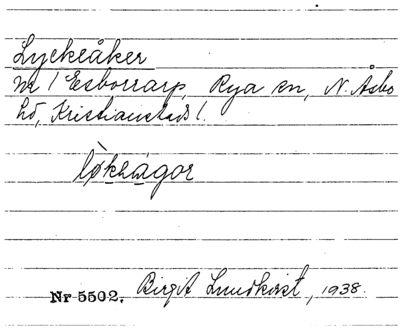 Lyckeåker
nr 1 Esborrarp, Rya sn, N. Åsbo
hd, Kristianstads l.
lỳkəågor
Nr 5502. Birgit Lundkvist, 1938.